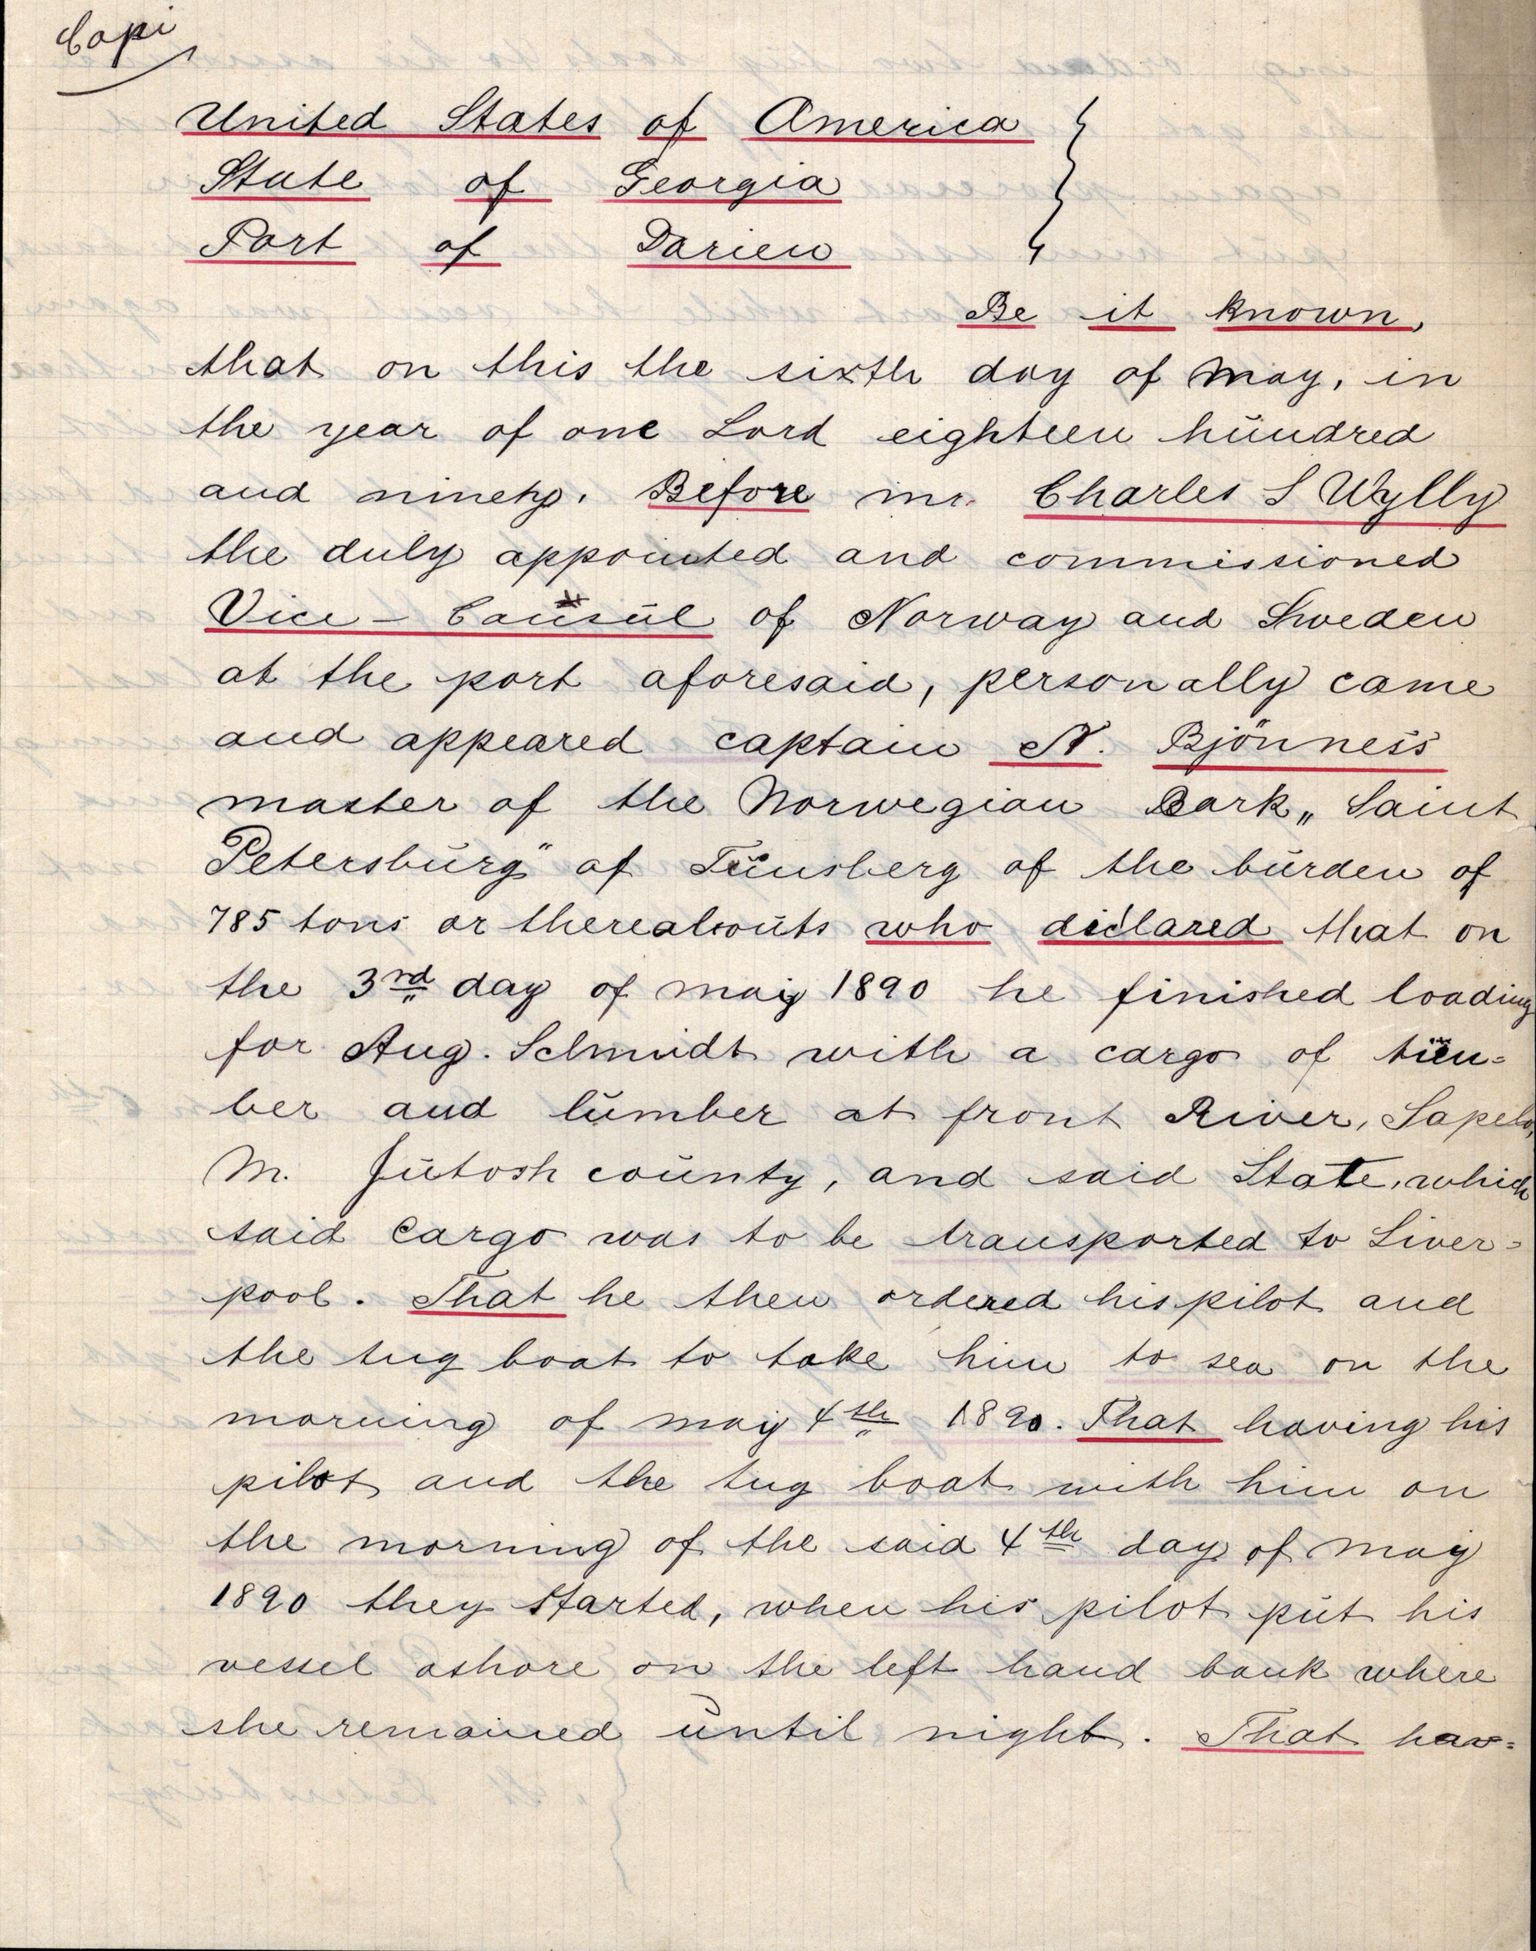 Copi
United States of America
State of Georgia
Port of Darien
Be it known,
that on this the sixth day of May, in
the year of one Lord eighteen hundred
and ninety. Before me. Charles S Wylly
the duly appointed and commissioned
Vice - Consul of Norway and Sweden
at the port aforesaid, personally came
and appeared captain N. Bjönness
master of the Norwegian Bark „Saint
Petersburg" of Tunsberg of the burden of
785 tons or thereabouts who declared that on
the 3rd day of may 1890 he finished loading
for Aug. Schmidt with a cargo of tim=
ber and lumber at front River, Sapelo,
M. Jutosh county, and said State, which
said cargo was to be transported to Liver=
pool. That he then ordered his pilot and
the tug boat to take him to sea on the
morning of may 4th 1890. That having his
pilot and the tug boat with him on
the morning of the said 4th day of may
1890 they started, when his pilot put his
vessel ashore on the left hand bank where
she remained until night. That hav=